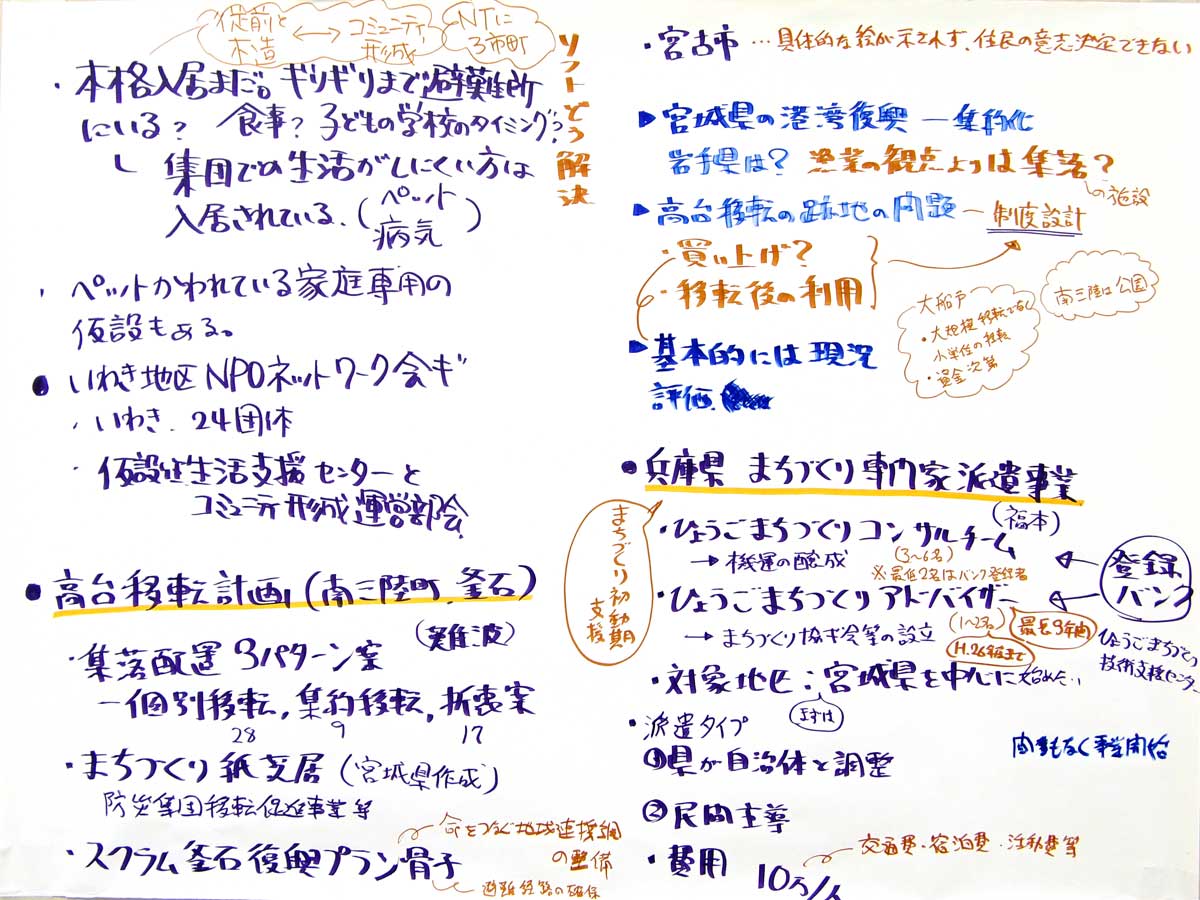 従前と
木造
↔
コミュニティ
形成
NTに
3市町
ソフトどう解決
・本格入居まだ。ギリギリまで避難所
にいる? 食事? 子どもの学校のタイミング?
集団での生活がしにくい方は
入居されている。(ペット
病気)
・ペットかわれている家庭専用の
仮設もある。
●いわき地区NPOネットワーク会ギ
・いわき.24団体
・仮設住生活支援センターと
コミュニティ形成運営部会
●高台移転計画(南三陸町、釜石)
(難波)
・集落配置3パターン案
ー個別移転,集約移転,折衷案
28 9 17
・まちづくり紙芝居(宮城県作成)
防災集団移転促進事業等
・スクラム釜石復興プラン骨子
命をつなぐ地域連携網
の整備
避難経路の確保
・宮古市…具体的な絵が示されず、住民の意志決定できない
▶宮城県の港湾復興ー集約化
岩手県は? 漁業の観点よりは集落?
の施設
▶高台移転の跡地の問題ー制度設計
・買い上げ?
・移転後の利用
大船戸
・大規模移転でなく
小単位の移転
・資金次第
南三陸は公園
▶基本的には現況
評価.
●兵庫県 まちづくり専門家派遣事業
まちづくり初動期
支援
(福本)
・ひょうごまちづくりコンサルチーム
→機運の醸成
(3~6名)
※最低2名はバンク登録者
・ひょうごまちづくりアドバイザー
→まちづくり協ギ会等の設立
(1~2名)
最長3年間
H.26年度まで
登録
バンク
ひょうごまちづくり
技術支援センター
・対象地区:宮城県を中心に始めたい
まずは
・派遣タイプ
間もなく事業開始
①県が自治体と調整
②民間主導
・費用 10万/人
交通費・宿泊費・活動費等